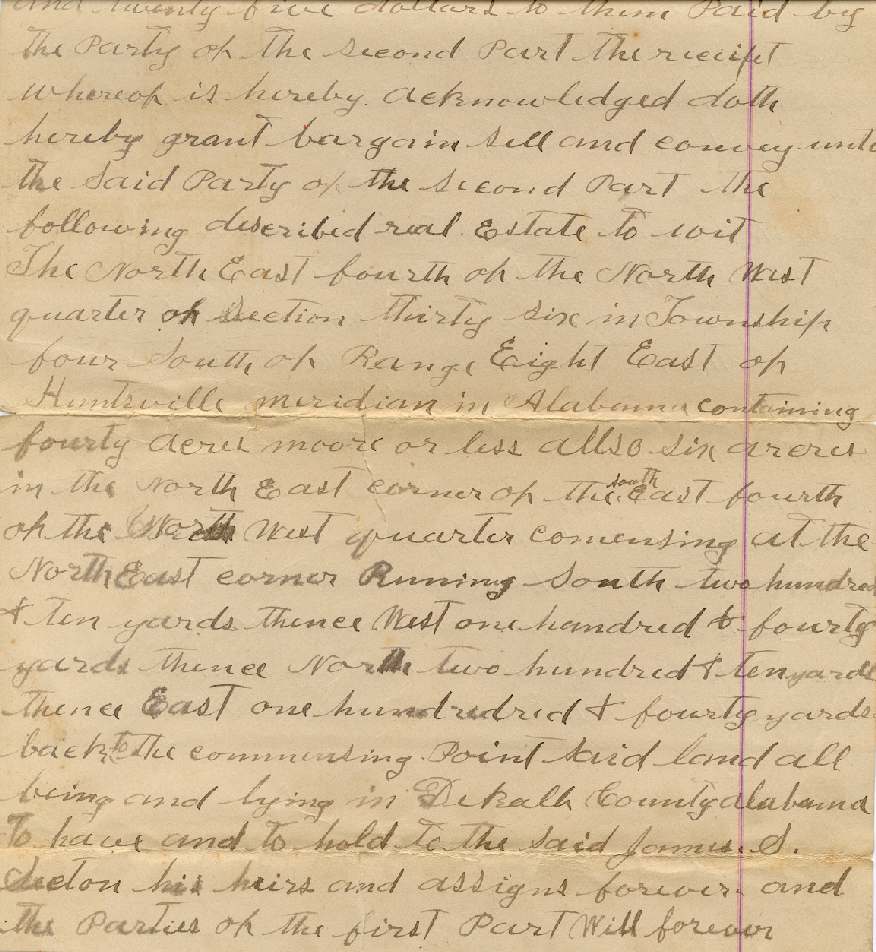 and twenty five dollars to them Paid by
the Party of the second Part the reciept
whereof is hereby acknowledged doth
hereby grant bargain sell and convey unto
the Said Party of the second Part the
following described real Estate to wit
The North East fourth of the North West
quarter of Section thirty six in Township
four South of Range Eight East of
Huntsville meridian in Alabama containing
fourty acres moore or less allso six arcres
in the North East corner of the south East fourth
of the North West quarter comensing at the
North East corner Running South two hundred
& ten yards thence West one handred & fourty
yards thence North two hundred & ten yards
thence East one hundredred & fourty yards
back to the commensing Point said land all
being and lying in Dekalb County alabama
To have and to hold to the said James S.
his heirs and assigns forever and
the Parties of the first Part Will forever